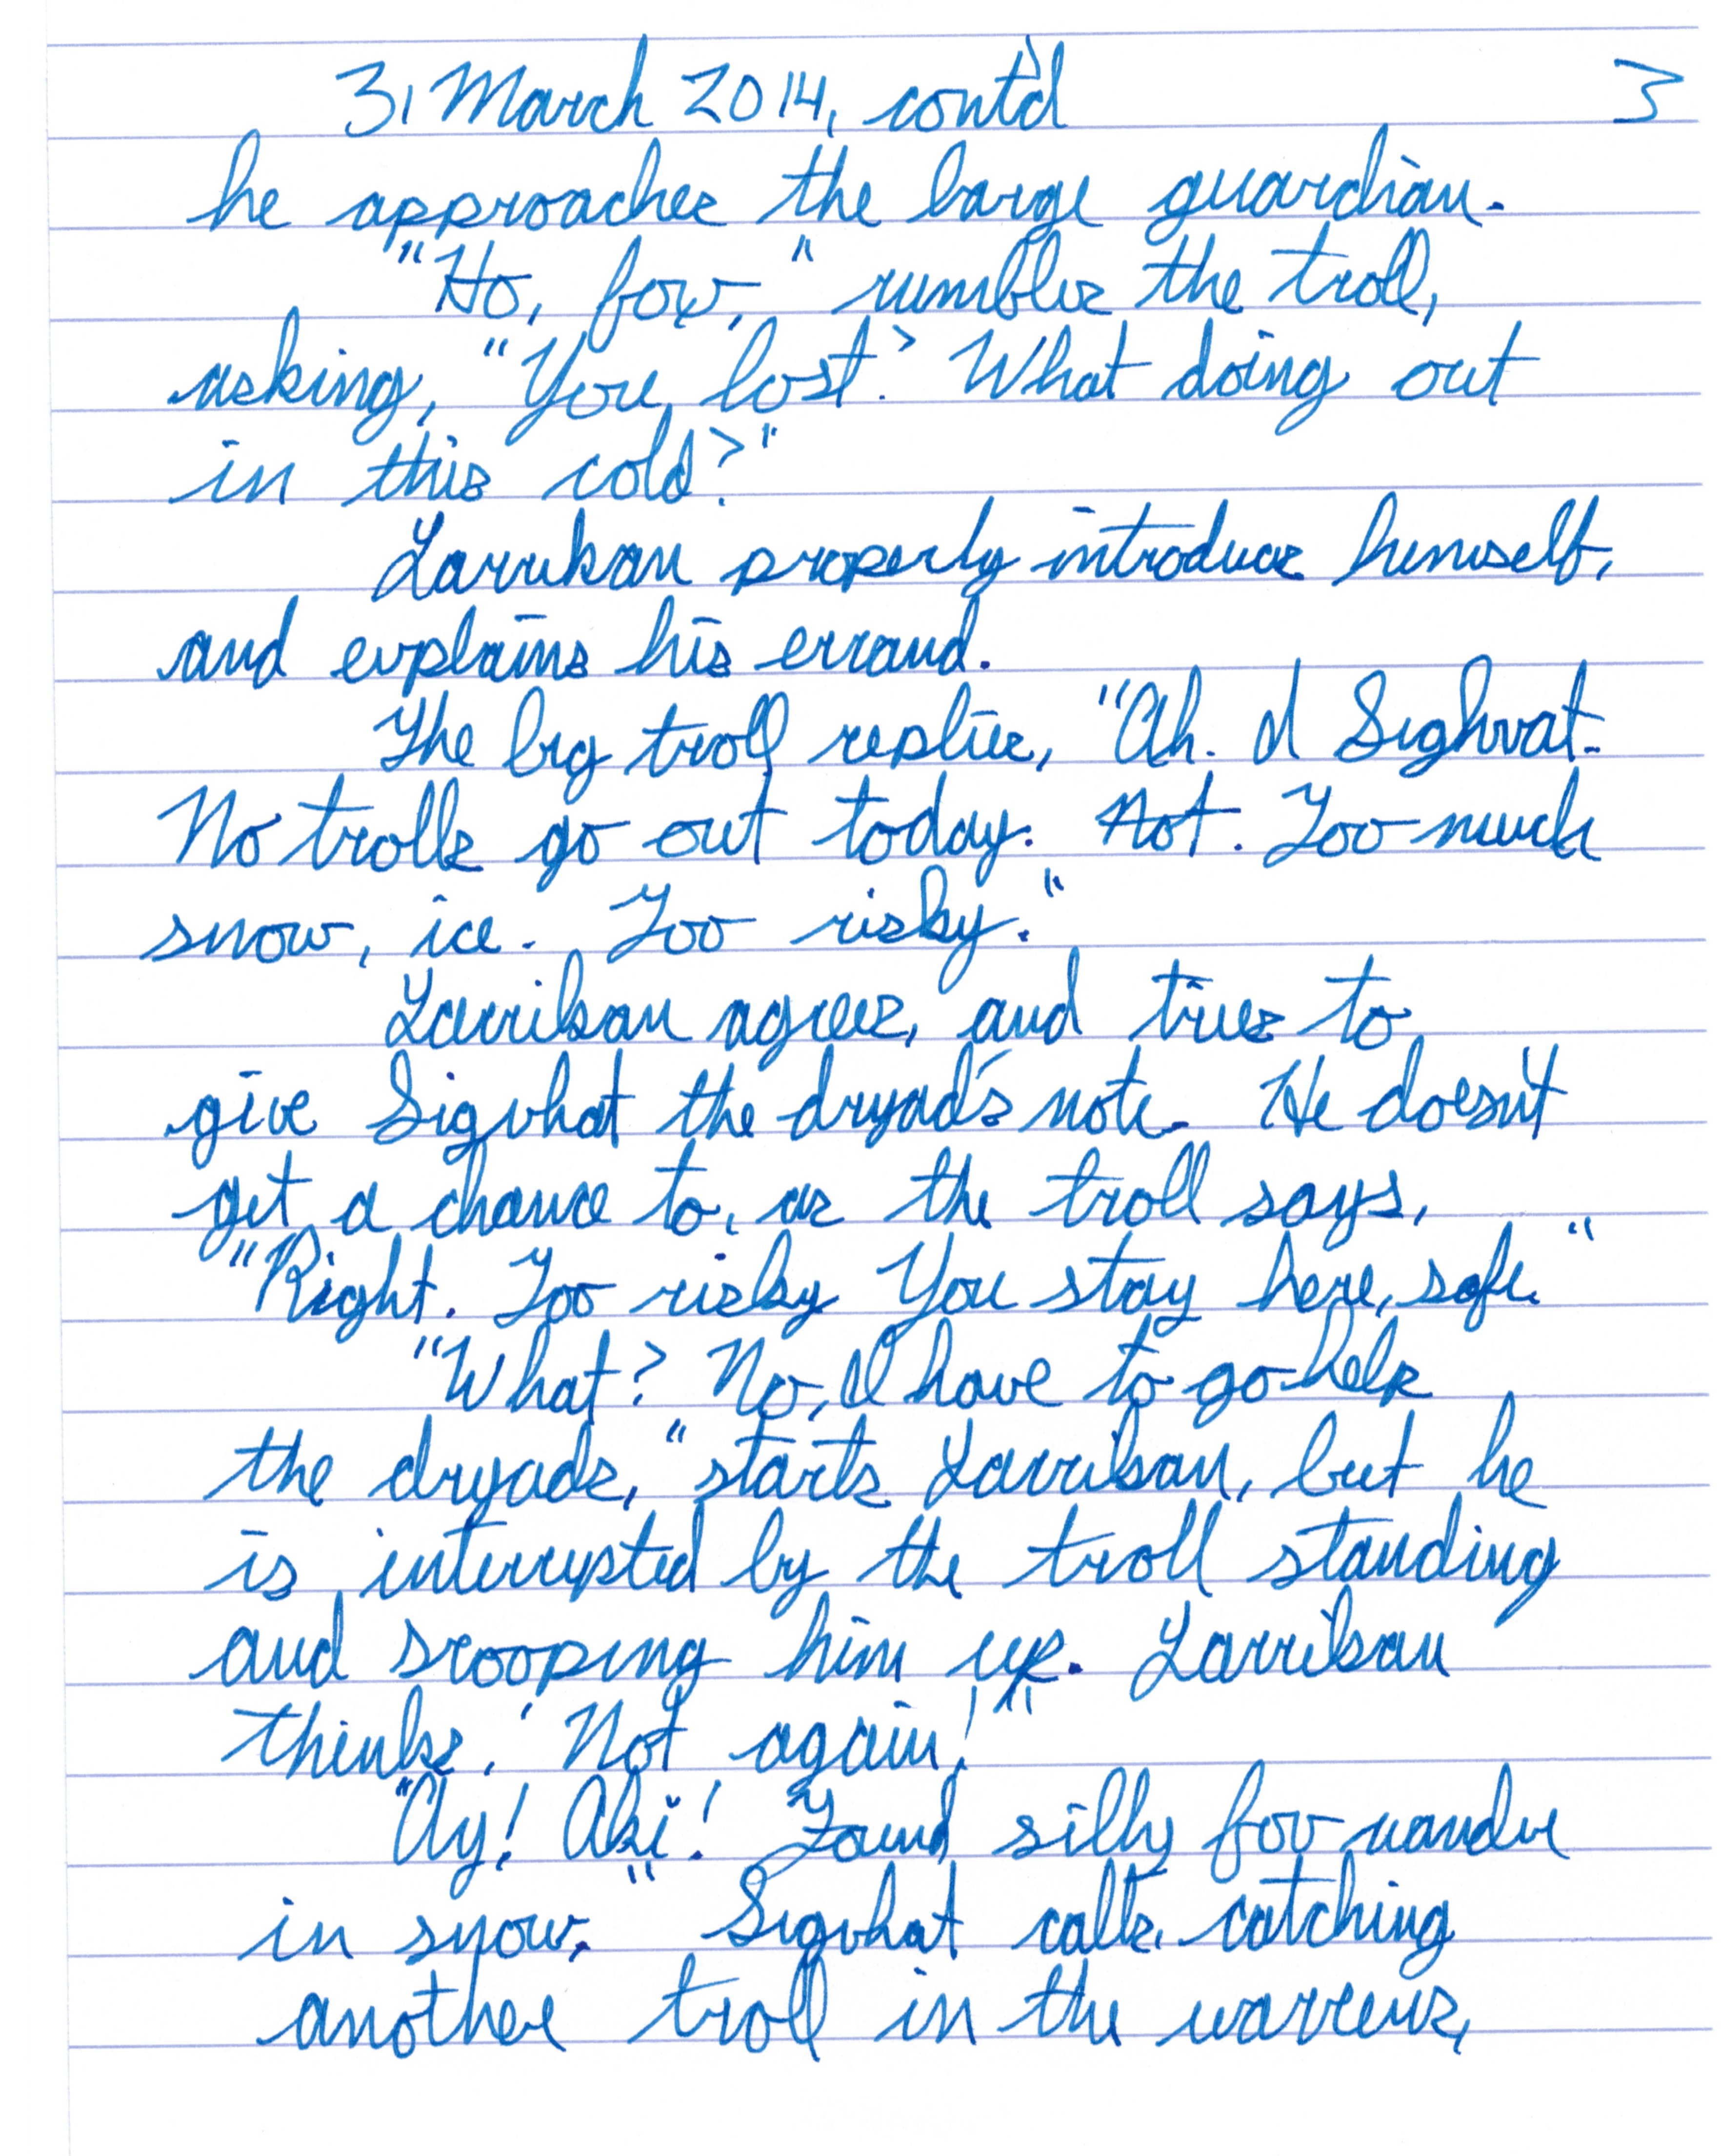 31 March 2014, cont'd 3
he approaches the large guardian.
"Ho, fox," rumbles the troll,
asking, "You lost? What doing out
in this cold?"
Larrikan properly introduces himself,
and explains his errand.
The big troll replies, "Ah. I Sighvat.
No trolls go out today. Not. Too much
snow, ice. Too risky."
Larrikan agrees, and tries to
give Sigvhat the dryad's note. He doesn't
get a chance to, as the troll says,
"Right. Too risky You stay here, safe."
"What? No, I have to go help
the dryads," starts Larrikan, but he
is interrupted by the troll standing
and scooping him up. Larrikan
thinks, 'Not again!'"
"Ay! Aki! Found silly fox wander
in snow." Sigvhat calls, catching
another troll in the warrens,